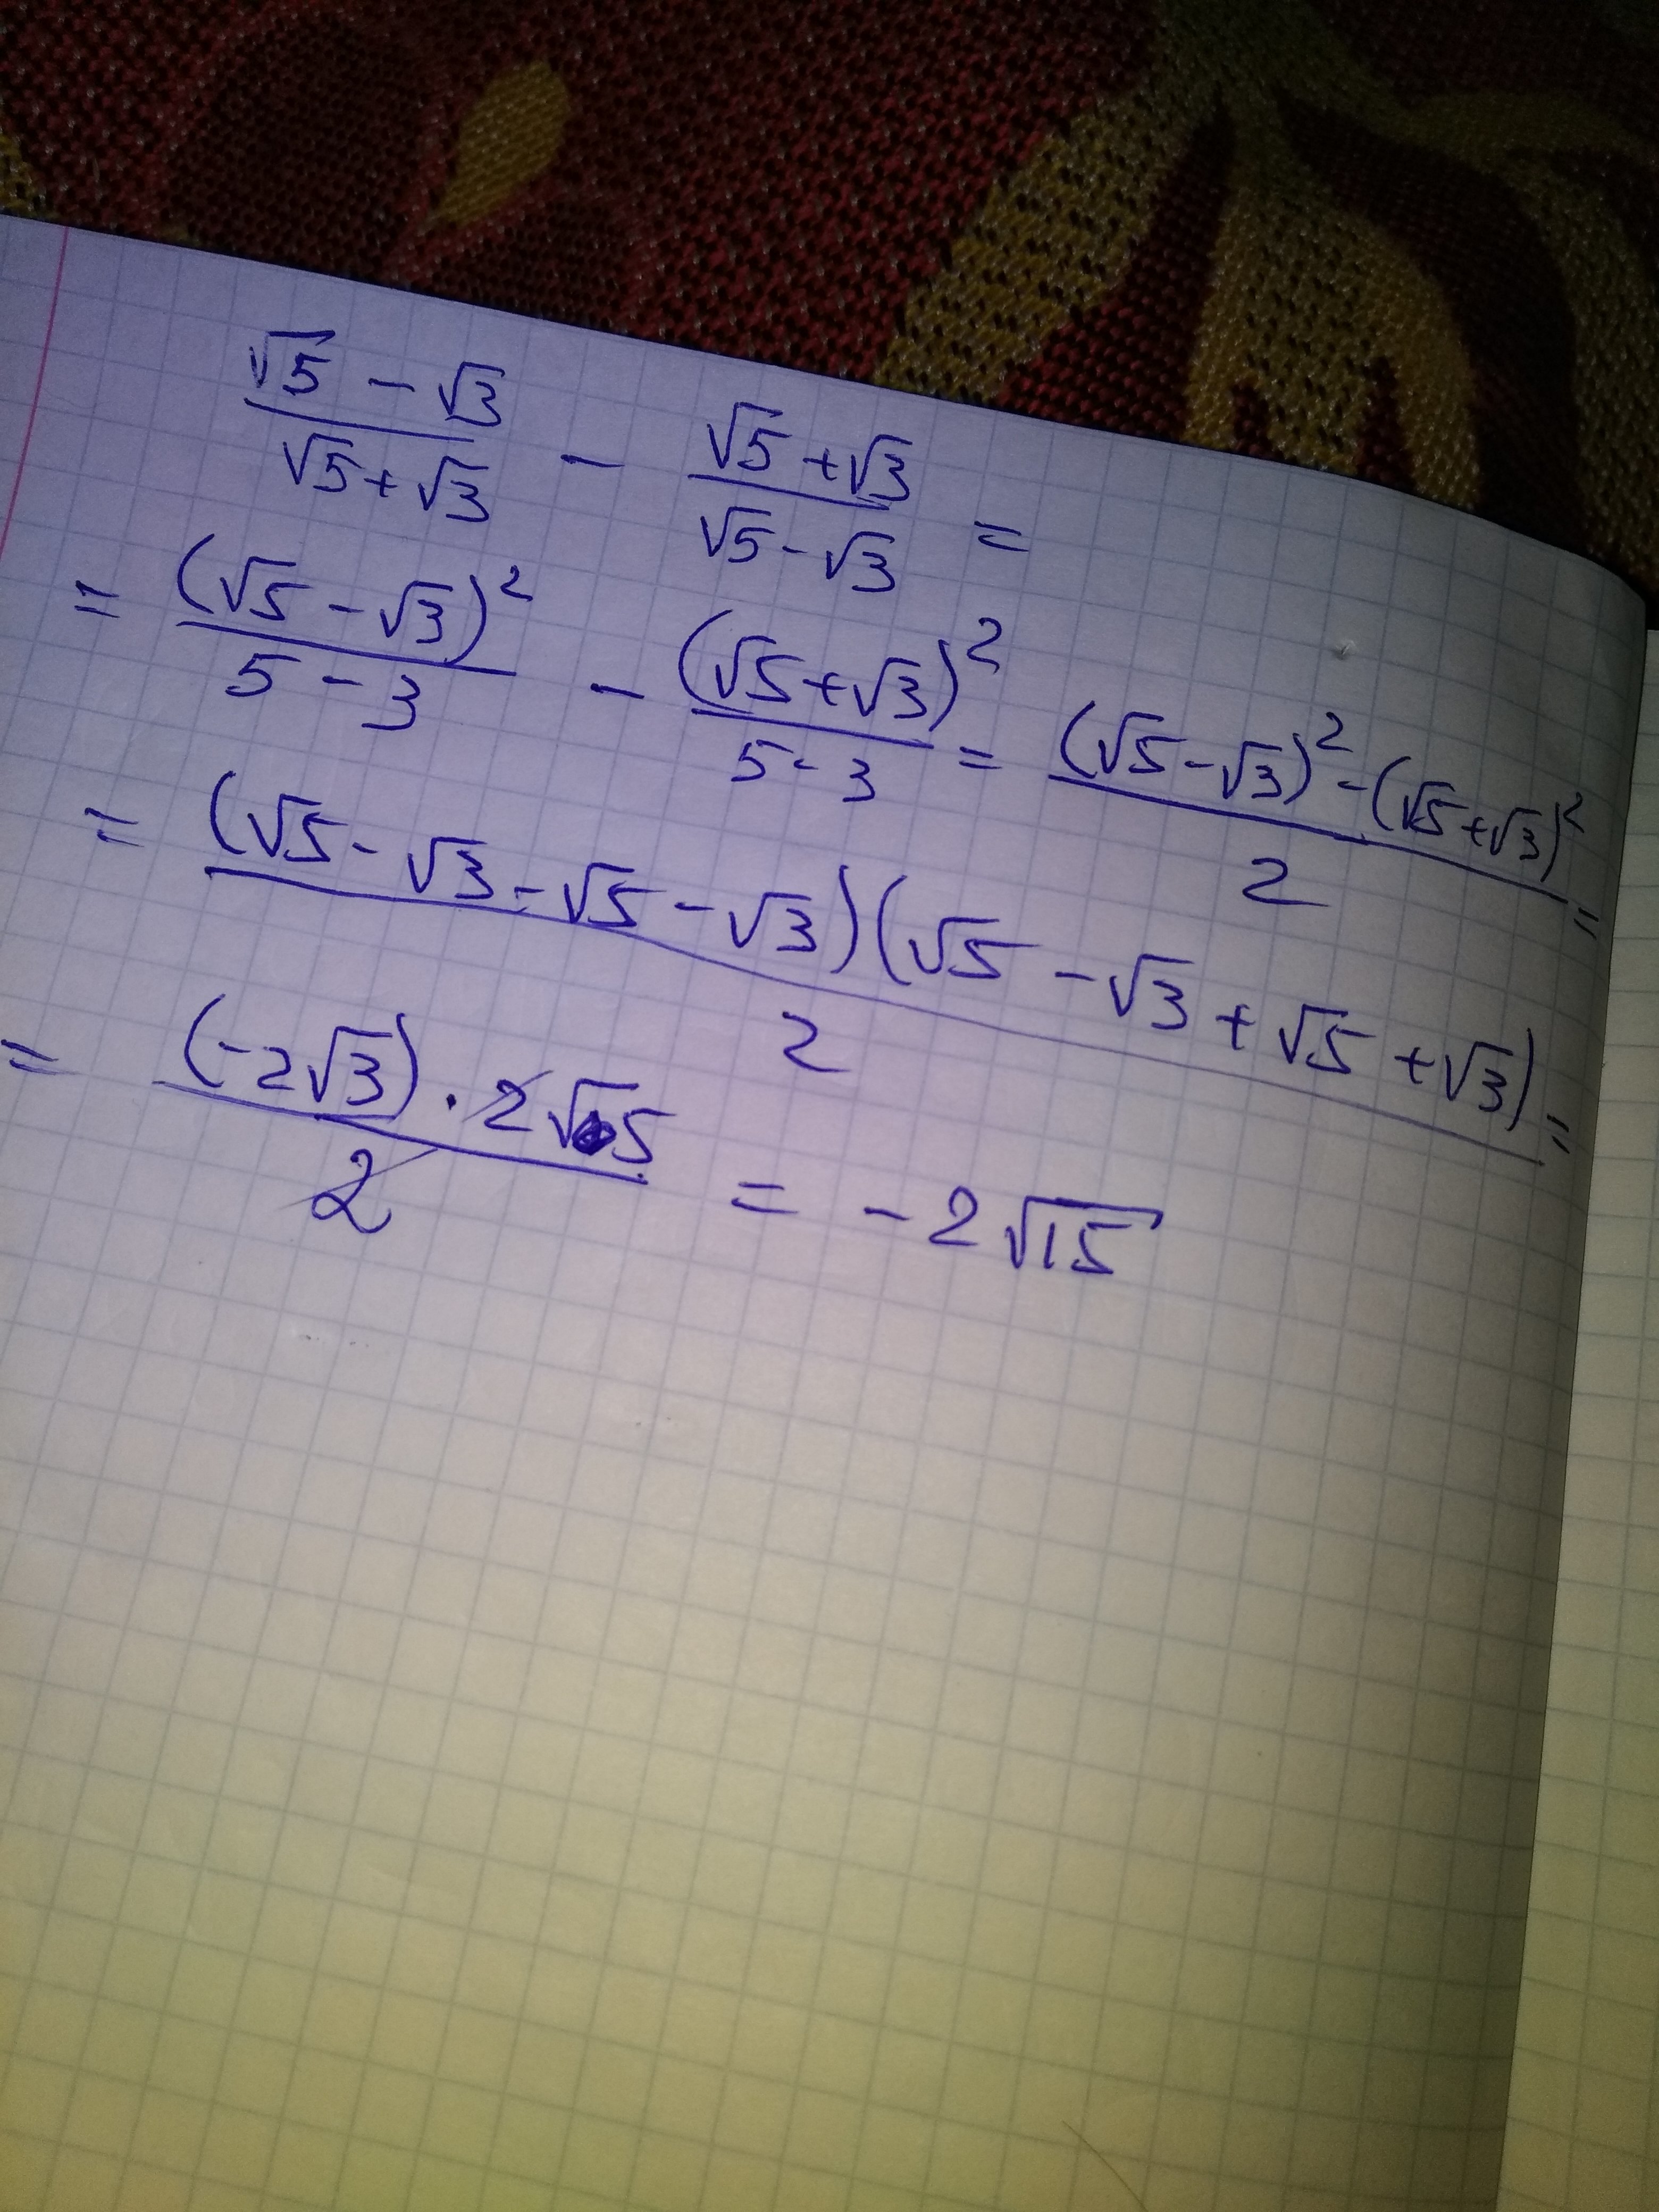 (√5 - √3)/(√5 + √3) - (√5 + √3)/(√5 - √3) =
= (√5 - √3)²/(5 - 3) - (√5 + √3)²/(5 - 3) = ((√5 - √3)² - (√5 + √3)²)/2 =
= ((√5 - √3 - √5 - √3)(√5 - √3 + √5 + √3))/2 =
= ((-2√3) · 2√5)/2 = -2√15